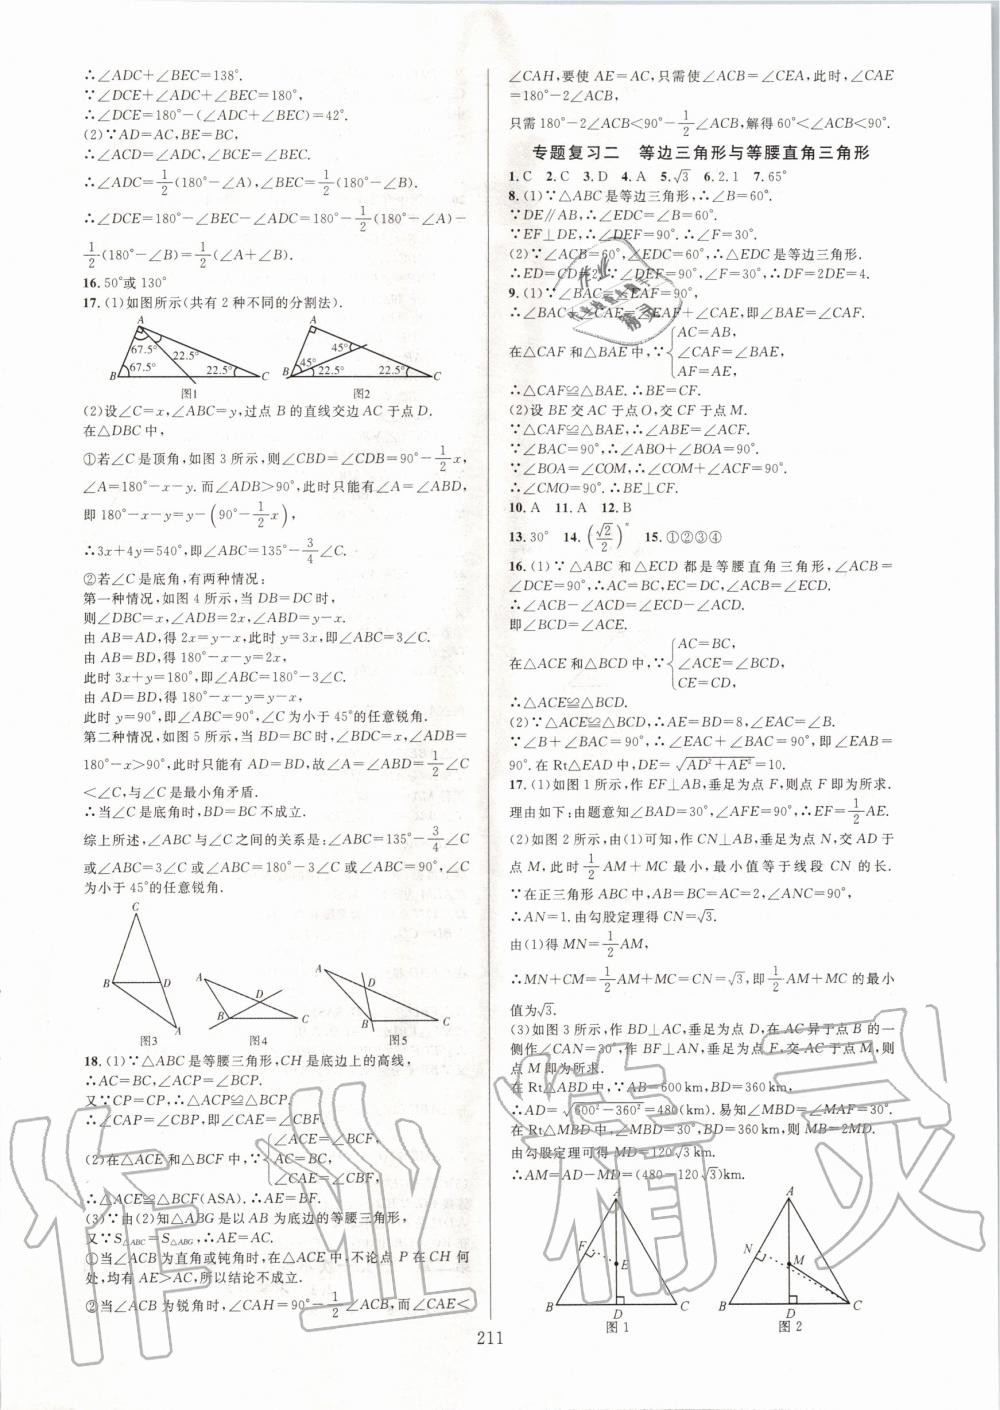 ∴∠ADC+∠BEC=138°.
∵∠DCE+∠ADC+∠BEC=180°,
∴∠DCE=180°-(∠ADC+∠BEC)=42°.
(2)∵AD=AC,BE=BC,
∴∠ACD=∠ADC,∠BCE=∠BEC.
∴∠ADC=1/2(180°-∠A),∠BEC=1/2(180°-∠B).
∴∠DCE=180°-∠BEC-∠ADC=180°-1/2(180°-∠A)-
1/2(180°-∠B)=1/2(∠A+∠B).
16.50°或 130°
17.(1)如图所示(共有 2 种不同的分割法).
A
67.5°
22.5°
67.5°
22.5°
B
C
图1
A
45°
45°
22.5°
22.5°
B
C
图2
(2)设∠C=x,∠ABC=y,过点 B 的直线交边 AC 于点 D.
在△DBC 中,
①若∠C 是顶角,如图 3 所示,则∠CBD=∠CDB=90°-1/2x,
∠A=180°-x-y.而∠ADB>90°,此时只能有∠A=∠ABD,
即 180°-x-y=y-(90°-1/2x),
∴3x+4y=540°,即∠ABC=135°-3/4∠C.
②若∠C 是底角,有两种情况:
第一种情况,如图 4 所示,当 DB=DC 时,
则∠DBC=x,∠ADB=2x,∠ABD=y-x.
由 AB=AD,得 2x=y-x,此时 y=3x,即∠ABC=3∠C.
由 AB=BD,得 180°-x-y=2x,
此时 3x+y=180°,即∠ABC=180°-3∠C.
由 AD=BD,得 180°-x-y=y-x,
此时 y=90°,即∠ABC=90°,∠C 为小于 45°的任意锐角.
第二种情况,如图 5 所示,当 BD=BC 时,∠BDC=x,∠ADB=
180°-x>90°,此时只能有 AD=BD,故∠A=∠ABD=1/2∠C
<∠C,与∠C 是最小角矛盾.
∴当∠C 是底角时,BD=BC 不成立.
综上所述,∠ABC 与∠C 之间的关系是:∠ABC=135°-3/4∠C
或∠ABC=3∠C 或∠ABC=180°-3∠C 或∠ABC=90°,∠C
为小于 45°的任意锐角.
C
B
D
A
图3
A
D
B
C
图4
A
D
B
C
图5
18.(1)∵△ABC 是等腰三角形,CH 是底边上的高线,
∴AC=BC,∠ACP=∠BCP.
又∵CP=CP,∴△ACP≌△BCP.
∴∠CAP=∠CBP,即∠CAE=∠CBF.
(2)在△ACE 和△BCF 中,∵{∠ACE=∠BCF,
AC=BC,
∠CAE=∠CBF,
∴△ACE≌△BCF(ASA).∴AE=BF.
(3)∵由(2)知△ABG 是以 AB 为底边的等腰三角形,
又∵S△ABC=S△ABG,∴AE=AC.
①当∠ACB 为直角或钝角时,在△ACE 中,不论点 P 在 CH 何
处,均有 AE>AC,所以结论不成立.
②当∠ACB 为锐角时,∠CAH=90°-1/2∠ACB,而∠CAE<
∠CAH,要使 AE=AC,只需使∠ACB=∠CEA,此时,∠CAE
=180°-2∠ACB,
只需 180°-2∠ACB<90°-1/2∠ACB,解得 60°<∠ACB<90°.
专题复习二 等边三角形与等腰直角三角形
1.C 2.C 3.D 4.A 5.√3 6.2,1 7.65°
8.(1)∵△ABC 是等边三角形,∴∠B=60°.
∵DE∥AB,∴∠EDC=∠B=60°.
∵EF⊥DE,∴∠DEF=90°.∴∠F=30°.
(2)∵∠ACB=60°,∠EDC=60°,∴△EDC 是等边三角形.
∴ED=CD=2.∵∠DEF=90°,∠F=30°,∴DF=2DE=4.
9.(1)∵∠BAC=∠EAF=90°,
∴∠BAC+∠CAE=∠EAF+∠CAE,即∠BAE=∠CAF.
在△CAF 和△BAE 中,∵{AC=AB,
∠CAF=∠BAE,
AF=AE,
∴△CAF≌△BAE.∴BE=CF.
(2)设 BE 交 AC 于点 O,交 CF 于点 M.
∵△CAF≌△BAE,∴∠ABE=∠ACF.
∵∠BAC=90°,∴∠ABO+∠BOA=90°.
∵∠BOA=∠COM,∴∠COM+∠ACF=90°.
∴∠CMO=90°.∴BE⊥CF.
10.A 11.A 12.B
13.30° 14.(√2/2)ⁿ 15.①②③④
16.(1)∵△ABC 和△ECD 都是等腰直角三角形,∠ACB=
∠DCE=90°,∴AC=BC,EC=DC,∠ACB=∠ECD.
∴∠ACB-∠ACD=∠ECD-∠ACD.
即∠BCD=∠ACE.
在△ACE 和△BCD 中,∵{AC=BC,
∠ACE=∠BCD,
CE=CD,
∴△ACE≌△BCD.
(2)∵△ACE≌△BCD,∴AE=BD=8,∠EAC=∠B.
∵∠B+∠BAC=90°,∴∠EAC+∠BAC=90°,即∠EAB=
90°.在 Rt△EAD 中,DE=√(AD²+AE²)=10.
17.(1)如图 1 所示,作 EF⊥AB,垂足为点 F,则点 F 即为所求.
理由如下:由题意知∠BAD=30°,∠AFE=90°,∴EF=1/2AE.
(2)如图 2 所示,由(1)可知,作 CN⊥AB,垂足为点 N,交 AD 于
点 M,此时 1/2AM+MC 最小,最小值等于线段 CN 的长.
∵在正三角形 ABC 中,AB=BC=AC=2,∠ANC=90°,
∴AN=1.由勾股定理得 CN=√3.
由(1)得 MN=1/2AM,
∴MN+CM=1/2AM+MC=CN=√3,即1/2AM+MC 的最小
值为√3.
(3)如图 3 所示,作 BD⊥AC,垂足为点 D,在 AC异于点 B 的一
侧作∠CAN=30°,作 BF⊥AN,垂足为点 F,交 AC 于点 M,则
点 M 即为所求.
在 Rt△ABD 中,∵AB=600 km,BD=360 km,
∴AD=√(600²-360²)=480(km).易知∠MBD=∠MAF=30°.
在 Rt△MBD 中,∠MBD=30°,BD=360 km,则 MB=2MD.
由勾股定理可得 MD=120√3 km.
∴AM=AD-MD=(480-120√3)km.
A
F
E
B
D
C
图 1
A
N
M
B
D
C
图 2
211
作业精灵